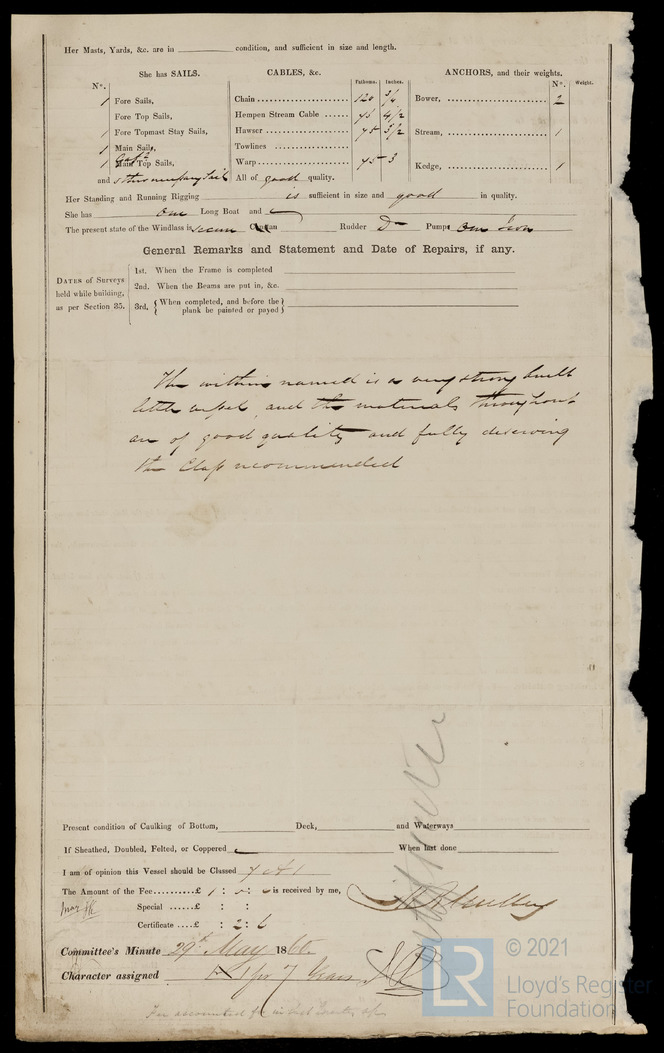 Her Masts, Yards, &c. are in condition, and sufficient in size and length.
She has SAILS. CABLES, &c. Fathoms. Inches. ANCHORS, and their weights. N°. Weight.
N°.
1 Fore Sails, Chain 120 3/4 Bower, 2
Fore Top Sails, Hempen Stream Cable 75 4 1/2
1 Fore Topmast Stay Sails, Hawser 75 3 1/2 Stream, 1
1 Main Sails, Towlines
1 Main Top Sails, Warp 75 3 Kedge, 1
and other necessary sails All of good quality.
Her Standing and Running Rigging is sufficient in size and good in quality.
She has One Long Boat and
The present state of the Windlass is secure Capstan Rudder Do Pumps One Iron
General Remarks and Statement and Date of Repairs, if any.
DATES of Surveys held while building, as per Section 35.
1st. When the Frame is completed
2nd. When the Beams are put in, &c.
3rd. When completed, and before the plank be painted or payed
The within named is a very strong built
little vessel, and the materials throughout
are of good quality and fully deserving
the Class recommended
Present condition of Caulking of Bottom, Deck, and Waterways
If Sheathed, Doubled, Felted, or Coppered When last done
I am of opinion this Vessel should be Classed 7 A 1
The Amount of the Fee £ 1 : 0 : 0 is received by me,
Special £ : :
Certificate £ : 2 : 6
Committee's Minute 29th May 186
Character assigned A 1 for 7 Years
© 2021
LR
Lloyd's Register
Foundation